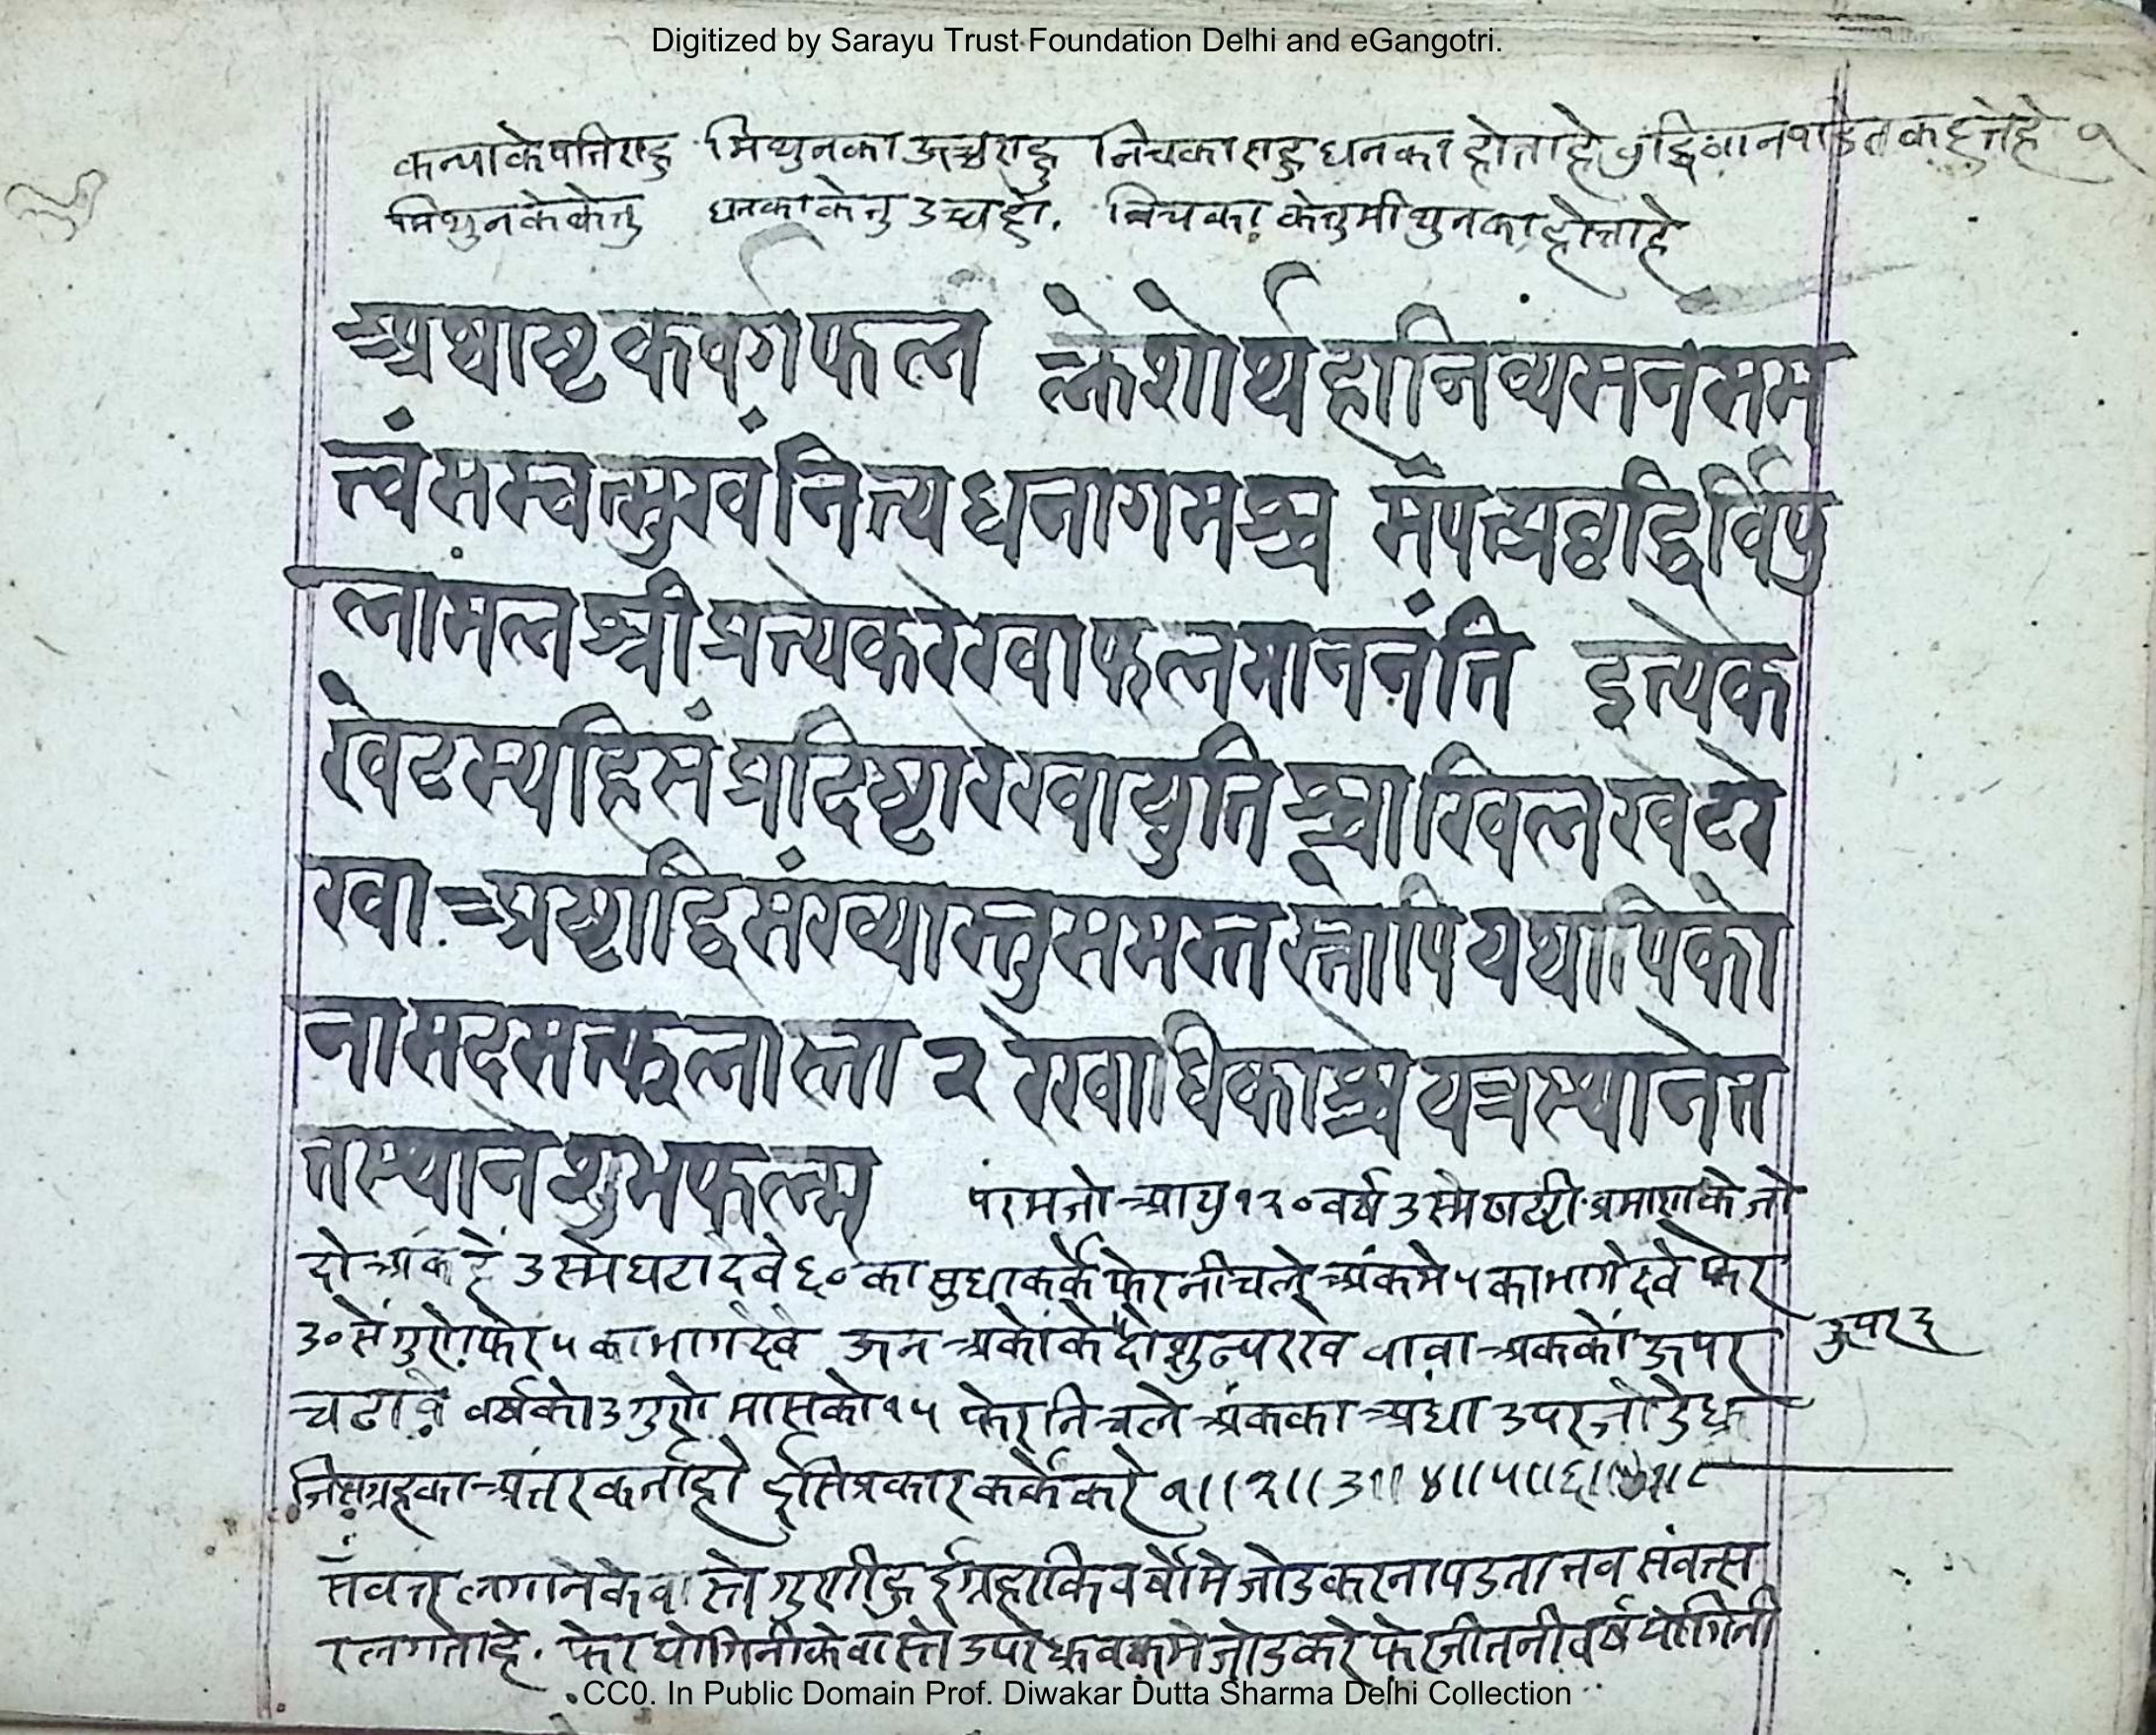 Digitized by Sarayu Trust Foundation Delhi and eGangotri.
कन्याकेपतिराहु मिथुनका ऊच्चराहु निचकाराहु धनका होताहे कहत्तेहे १
मिथुनकेकेतु धनकाकेतु उच्चहो. निचका केतुमीथुनका होत्ताहे
अथाष्टकवर्गफलं क्लेशोर्थहानिव्यसनंसम
त्वंसस्वत्सुखंनित्यधनागमश्च संपत्प्रवृद्धिर्विपु
लामलश्रीप्रत्येकरेखाफलमाननंति इत्येक
खेटस्यहिसंप्रदिष्टारेखायुतिश्चाखिलखेटरे
खा अष्टाद्विसंख्यास्तुसमस्तस्तोपियथापिको
नासदसत्फलास्ता २ रेखाधिकाश्चयत्रस्थानेत
तस्थानेशुभफलम्
परमजो आयु १२० वर्ष उस्मे प्रमाणके जो
दो अंक हे उस्मेघटादेवे ६० का कर्के फेर नीचले अंकमे ५ का भागदेवे फेर
३० सें गुणे फेर ५ का भागदेवे ऊन अकोके दो शुन्य अककों ऊपर
ऊपर ६
चढावे वर्षको ३ गुणे मासको १५ फेर निचले अंकका अधा उपरजोडे
जिसग्रहका अंतरकर्नाहो ईसिप्रकारकर्केकरे १।।२।।३।।४।।५।।६।।७।।८
संवत्त लगानेकेवास्ते गुणीहुई ग्रहाकिवर्षोमे जोडकरनापडता तव संवत्स
रलगताहे. फेर योगिनीकेवास्ते उपरे मे जोडकरे फेरजीतनीवर्ष योगिनी
CC0. In Public Domain Prof. Diwakar Dutta Sharma Delhi Collection